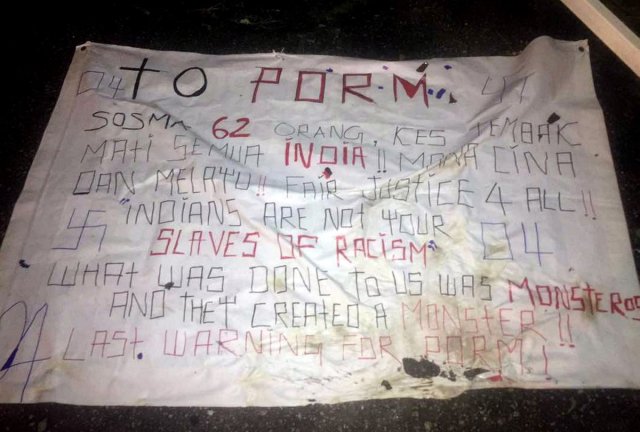 04 TO P.D.R.M. 04
SOSMA 62 ORANG, KES TEMBAK
MATI SEMUA INDIA!! MANA CINA
DAN MELAYU!! FAIR JUSTICE 4 ALL!!
"INDIANS ARE NOT YOUR
SLAVES OF RACISM" 04
WHAT WAS DONE TO US WAS MONSTEROS
AND THEY CREATED A MONSTER!!
04 LAST WARNING FOR P.D.R.M.!